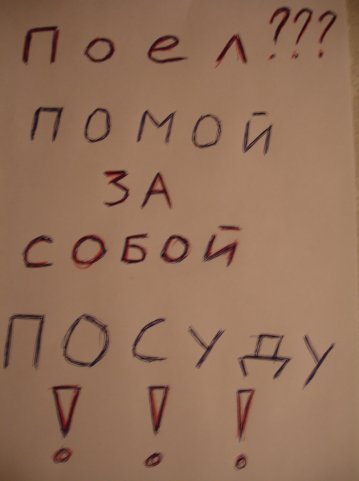 Поел???
ПОМОЙ
ЗА
СОБОЙ
ПОСУДУ
!!!